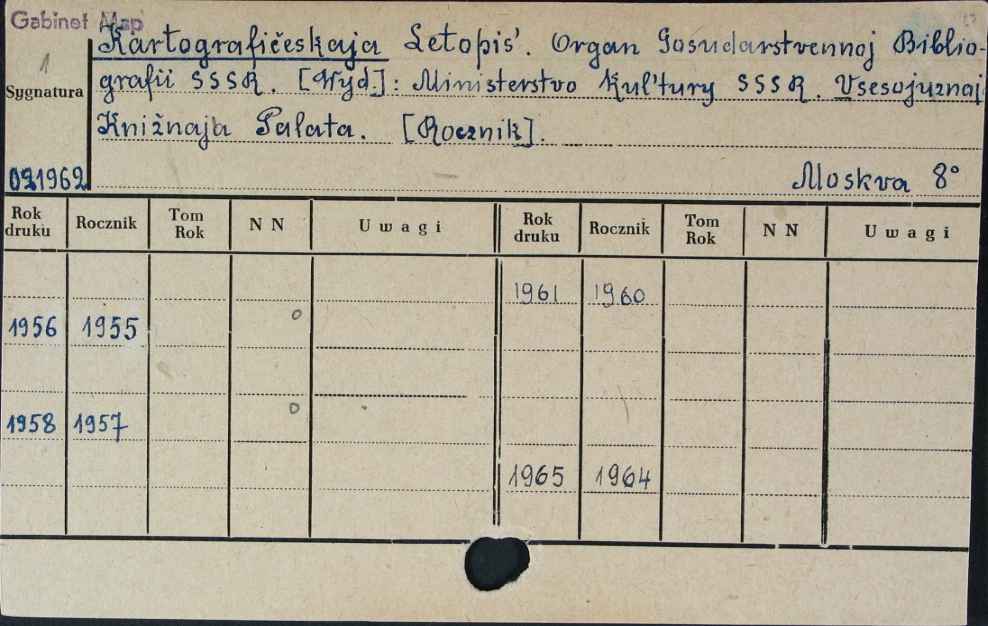 Gabinet Map
Kartografičeskaja Letopis'. Organ Gosudarstvennoj Biblio-
1
grafii SSSR. [Wyd.]: Ministerstvo Kul'tury SSSR. Vsesojuznaj
Sygnatura
Knižnaja Palata. [Rocznik].
1962
Moskva 8°
Rok druku Rocznik Tom Rok NN Uwagi Rok druku Rocznik Tom Rok NN Uwagi
1961 1960
1956 1955 o
1958 1957 o
1965 1964